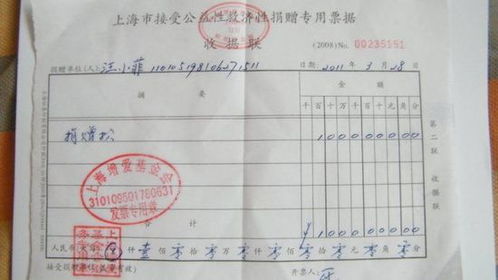 上海市接受公益性救济性捐赠专用票据
收据联
(2008)No. 00235151
捐赠单位(人) 汪小菲 日期 2011年3月28日
摘要 金额
千百十万千百十元角分
捐赠款 100000000
上海增爱基金会
310109501780631
发票专用章
合计 ¥100000000
人民币 仟壹佰零拾零万零仟零佰零拾零元零角零分
接受捐赠单位(盖章有效) 开票人:
第二联 收据联